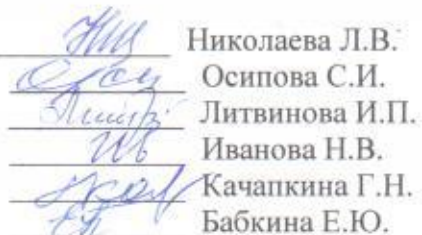 Николаева Л.В.
Осипова С.И.
Литвинова И.П.
Иванова Н.В.
Качапкина Г.Н.
Бабкина Е.Ю.